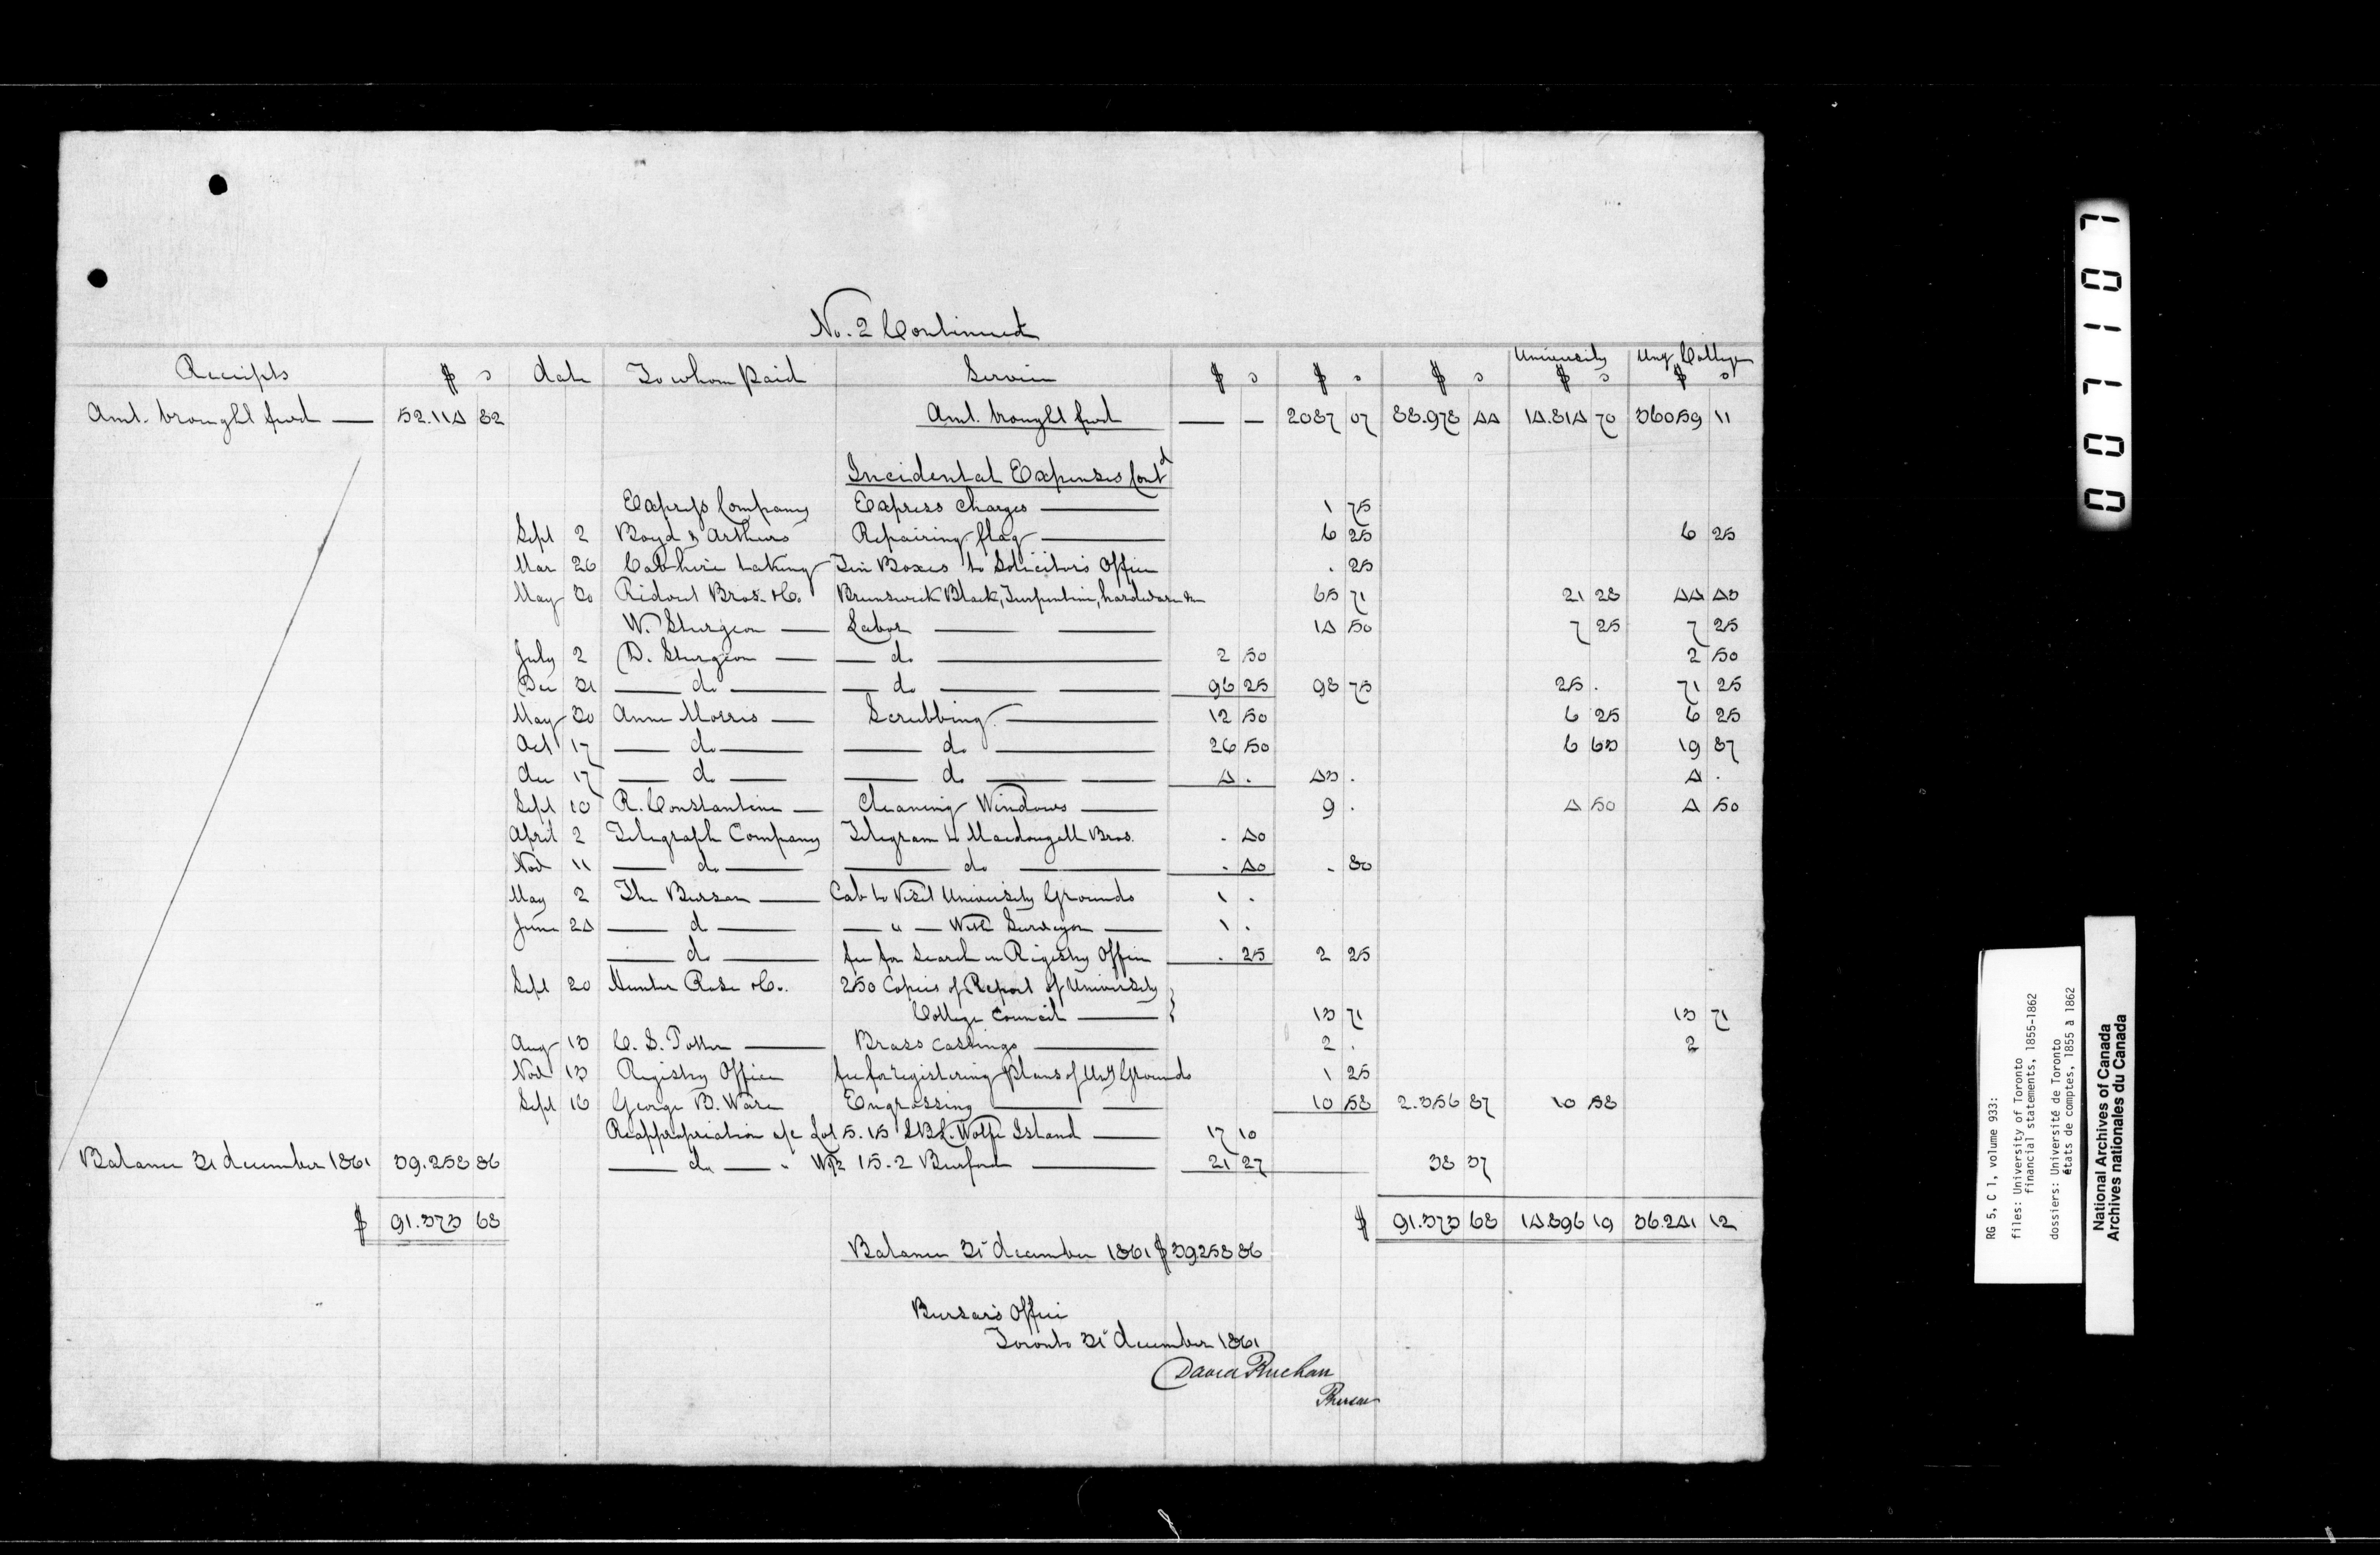 No. 2 Continued
Receipts $ c date To whom Paid Service $ c $ c $ c University $ c Uny College $ c
Amt. brought fwd — 52.114 82 Amt. brought fwd — — 2087 07 88.978 44 14.814 70 36059 11
Incidental Expenses Contd
Express Company Express Charges — 1 75
Sept 2 Boyd & Arthurs Repairing flag — 6 25 6 25
Mar 26 Cab hire taking Tin Boxes to Solicitors Office . 25
May 30 Ridout Bros. & Co. Brunswick Black, Turpentine, hardware &c 65 71 21 28 44 43
W. Sturgeon — Labor — 14 50 7 25 7 25
July 2 D. Sturgeon — — do — 2 50 2 50
Dec 31 — do — — do — 96 25 98 75 25 . 71 25
May 30 Anne Morris — Scrubbing — 12 50 6 25 6 25
Oct 17 — do — — do — 26 50 6 63 19 87
dec 17 — do — — do — 4 . 43 . 4 .
Sept 10 R. Constantine — Cleaning Windows — 9 . 4 50 4 50
April 2 Telegraph Company Telegram to Macdougall Bros. . 40
Nov 11 — do — — do — . 40 . 80
May 2 The Bursar — Cab to Visit University Grounds 1 .
June 24 — do — — " — With Surveyor — 1 .
— do — fee for Search in Registry Office . 25 2 25
Sept 20 Hunter Rose & Co. 250 Copies of Report of University
College Council — 13 71 13 71
Aug 13 C. S. Potter — Brass castings — 2 . 2
Nov 13 Registry Office fee for registering plans of Uny Grounds 1 25
Sept 16 George B. Ware Engrossing — 10 58 2.356 87 10 58
Reappropriation a/c Lot 5. 15 Wolfe Island — 17 10
Balance 31 december 1861 39.258 86 — do — " W½ 15. 2 Burford — 21 27 38 37
$ 91.373 68 $ 91.373 68 14896 19 36.241 12
Balance 31st december 1861 $ 39258 86
Bursar's Office
Toronto 31st december 1861
David Buchan
Bursar
007107
RG 5, C 1, volume 933:
files: University of Toronto
financial statements, 1855-1862
dossiers: Université de Toronto
états de comptes, 1855 à 1862
National Archives of Canada
Archives nationales du Canada